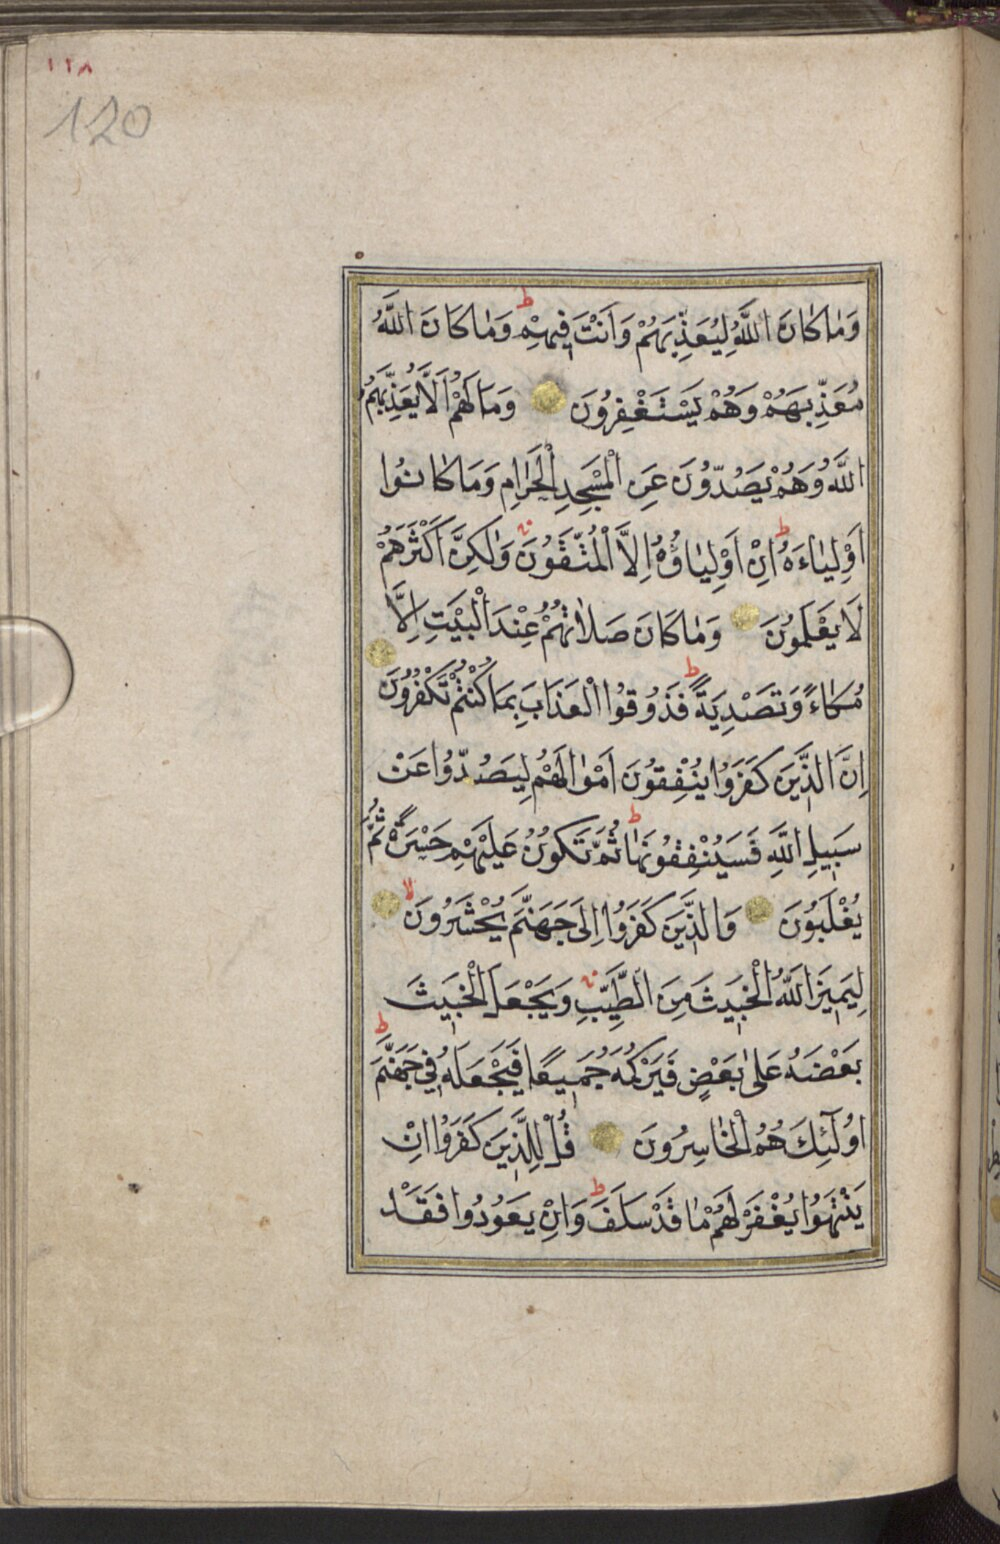 ١١٨
120
وَمَا كَانَ اللَّهُ لِيُعَذِّبَهُمْ وَاَنْتَ فِيهِمْ ط وَمَا كَانَ اللَّهُ
مُعَذِّبَهُمْ وَهُمْ يَسْتَغْفِرُونَ وَمَا لَهُمْ اَلَّا يُعَذِّبَهُمُ
اللَّهُ وَهُمْ يَصُدُّونَ عَنِ الْمَسْجِدِ الْحَرَامِ وَمَا كَانُوا
اَوْلِيَاءَهُ ط اِنْ اَوْلِيَاؤُهُ اِلَّا الْمُتَّقُونَ وَلٰكِنَّ اَكْثَرَهُمْ
لَا يَعْلَمُونَ وَمَا كَانَ صَلَاتُهُمْ عِنْدَ الْبَيْتِ اِلَّا
مُكَاءً وَتَصْدِيَةً ط فَذُوقُوا الْعَذَابَ بِمَا كُنْتُمْ تَكْفُرُونَ
اِنَّ الَّذِينَ كَفَرُوا يُنْفِقُونَ اَمْوَالَهُمْ لِيَصُدُّوا عَنْ
سَبِيلِ اللَّهِ فَسَيُنْفِقُونَهَا ط ثُمَّ تَكُونُ عَلَيْهِمْ حَسْرَةً ثُمَّ
يُغْلَبُونَ وَالَّذِينَ كَفَرُوا اِلَى جَهَنَّمَ يُحْشَرُونَ لا
لِيَمِيزَ اللَّهُ الْخَبِيثَ مِنَ الطَّيِّبِ وَيَجْعَلَ الْخَبِيثَ
بَعْضَهُ عَلٰى بَعْضٍ فَيَرْكُمَهُ جَمِيعًا فَيَجْعَلَهُ فِي جَهَنَّمَ ط
اُولٰئِكَ هُمُ الْخَاسِرُونَ قُلْ لِلَّذِينَ كَفَرُوا اِنْ
يَنْتَهُوا يُغْفَرْ لَهُمْ مَا قَدْ سَلَفَ ط وَاِنْ يَعُودُوا فَقَدْ